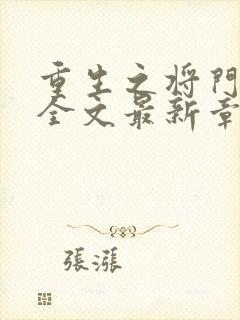 重生之将門
全文最新章
張漲